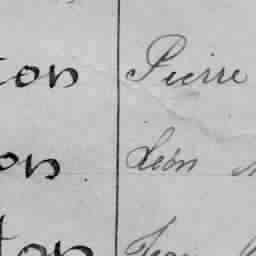 ton Pierre
on Léon
ton Jean